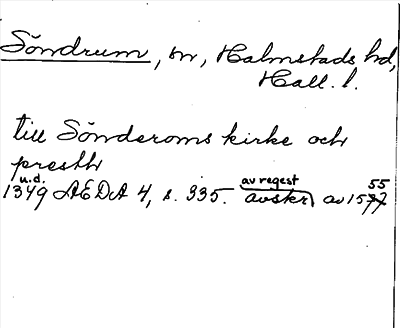 Söndrum, sn, Halmstads hd,
Hall. l.
till Sönderoms kirke och
presth
u.d. av regest 55
1349 ÆDA 4, s. 335. avskr av 1577